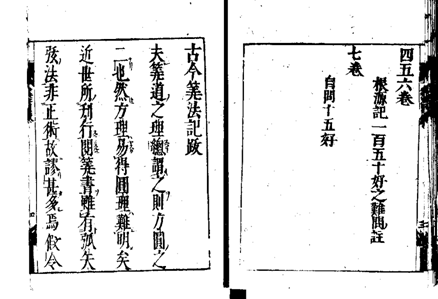 四五六巻
根源記一百五十好之難問註
七巻
自問十五好
古今筭法記跋
夫筭道之理總謂之則方圓之
二也然方理易得圓理難明矣
近世所刊行閲筭書雖有弧矢
弦法非正術故謬甚多焉假令